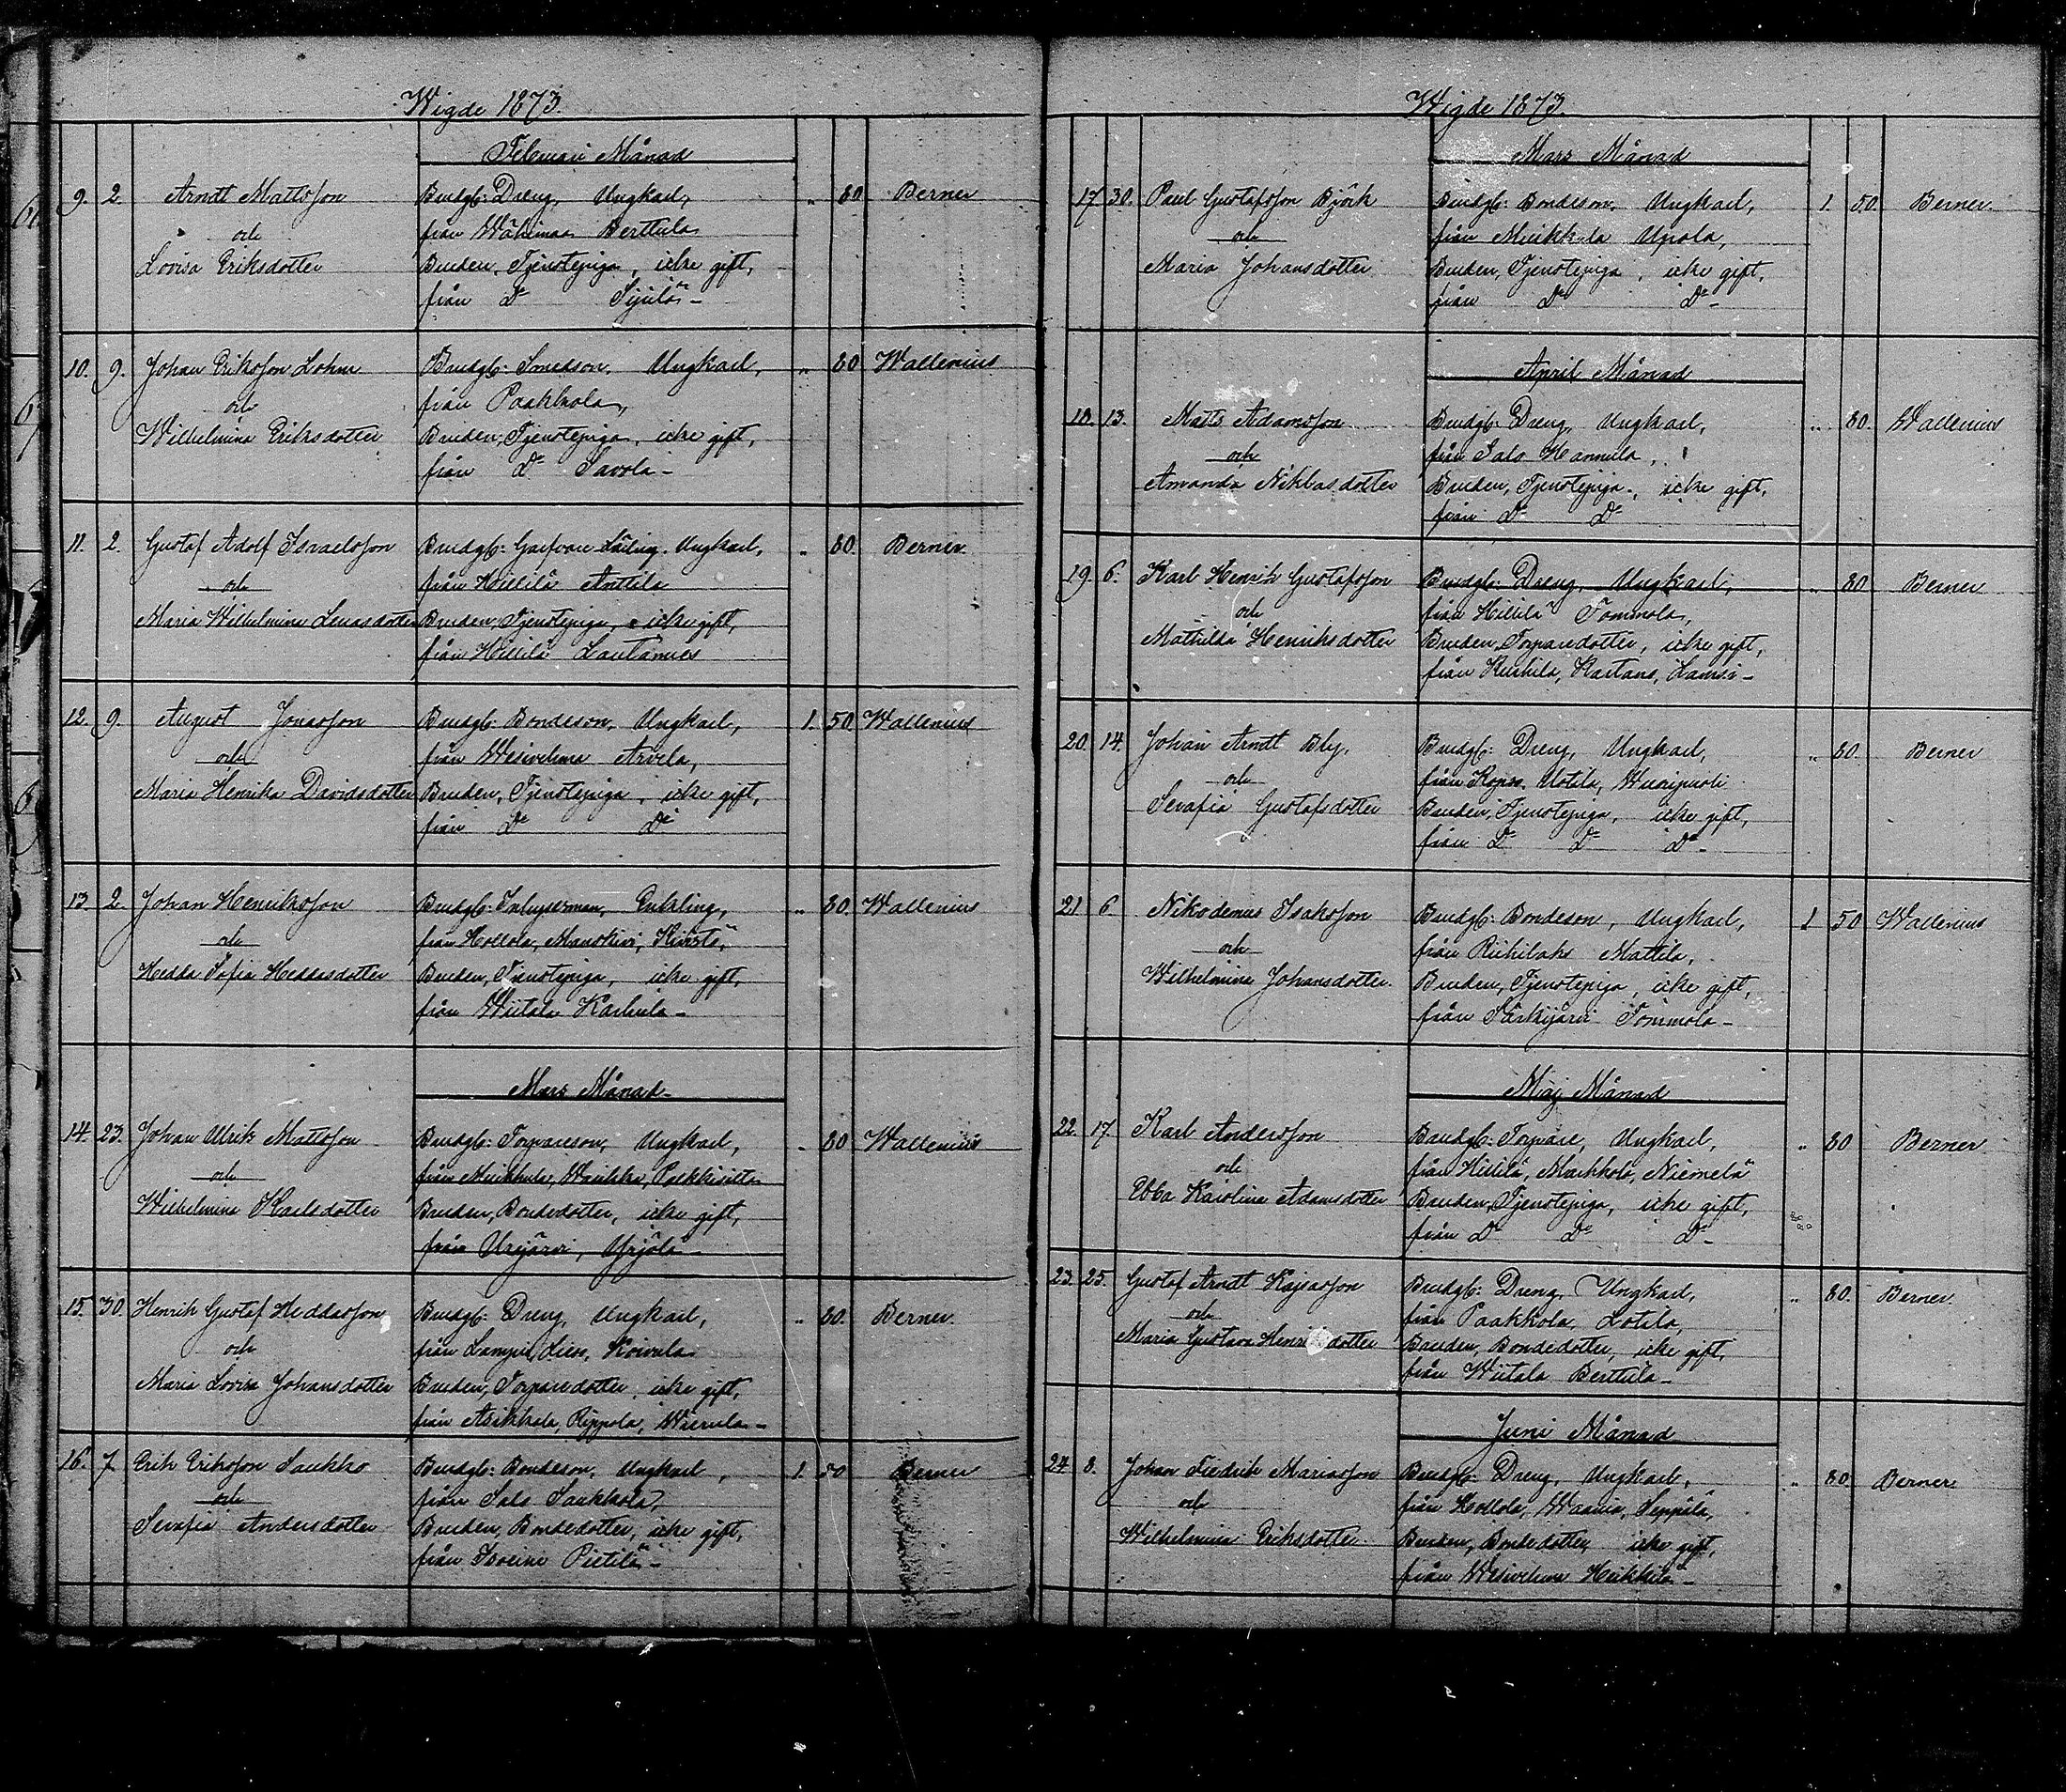 Wigde 1873.
Februari Månad
9. 2. Arndt Mattsson Brudg: Dreng, Ungkarl, „ 80 Berner
och från Wähimaa Berttula
Lovisa Eriksdotter Bruden, Tjenstepiga, icke gift,
från Do
10. 9. Johan Eriksson Lohm Brudg: Smedson, Ungkarl, „ 80 Wallenius
och från Paakkola,
Wilhelmina Eriksdotter Bruden, Tjenstepiga, icke gift,
från Do Savola -
11. 2. Gustaf Adolf Israelsson Brudg: Garfvare Lärling, Ungkarl, „ 80. Berner
och från Hillilä Anttila
Maria Wilhelmina Lenasdotter Bruden, Tjenstepiga, icke gift,
från Hillilä Lautamies
12. 9. August Jonasson Brudg: Bondeson, Ungkarl, 1. 50 Wallenius
och från Wesivehma Arvela,
Maria Henrika Davidsdotter Bruden, Tjenstepiga, icke gift,
från Do Do
13. 2. Johan Henriksson Brudg: Inhysesman, Enkling, „ 80. Wallenius
och från Hollola, Manskivi,
Hedda Sofia Heddasdotter Bruden, Tjenstepiga, icke gift,
från Wiitala Karhula -
Mars Månad
14. 23. Johan Ulrik Mattsson Brudg: Torpareson, Ungkarl, „ 80 Wallenius
och från Muikkula,
Wilhelmina Karlsdotter Bruden, Bondedotter, icke gift,
från Urajärvi, Yrjölä -
15. 30. Henrik Gustaf Heddasson Brudg: Dreng, Ungkarl, „ 80. Berner
och från Lampis, Lieso, Koivula
Maria Lovisa Johansdotter Bruden, Torparedotter, icke gift,
från Asikkala, Reppola,
16. 7. Erik Eriksson Saukko Brudg: Bondeson, Ungkarl, 1. 50 Berner
och från Salo Saukkola,
Serafia Andersdotter Bruden, Bondedotter, icke gift,
från Pietilä -
Wigde 1873.
Mars Månad
17 30. Paul Gustafsson Björk Brudg: Bondeson, Ungkarl, 1. 50. Berner.
och från Muikkula Upola,
Maria Johansdotter Bruden, Tjenstepiga, icke gift,
från Do Do -
April Månad
18. 13. Matts Adamsson Brudg: Dreng, Ungkarl, „ 80. Wallenius
och från Salo Hannula,
Amanda Niklasdotter Bruden, Tjenstepiga, icke gift,
från Do Do
19. 6. Karl Henrik Gustafsson Brudg: Dreng, Ungkarl, „ 80 Berner
och från Hillilä Tommola,
Mathilda Henriksdotter Bruden, Torparedotter, icke gift,
från Kurhila,
20. 14. Johan Arndt Bly. Brudg: Dreng, Ungkarl, „ 80. Berner
och från Kopsu, Uotila,
Serafia Gustafsdotter Bruden, Tjenstepiga, icke gift,
från Do Do Do -
21 6. Nikodemus Isaksson Brudg: Bondeson, Ungkarl, 1 50 Wallenius
och från Riihilaks Mattila,
Wilhelmina Johansdotter. Bruden, Tjenstepiga, icke gift,
från Särkijärvi Tommola -
Maj Månad
22. 17. Karl Andersson Brudg: Torpare, Ungkarl, „ 80 Berner
och från Hillilä, Markkola, Niemelä
Ebba Karolina Adamsdotter Bruden, Tjenstepiga, icke gift,
från Do Do Do -
23. 25. Gustaf Arndt Kajsasson Brudg: Dreng, Ungkarl, „ 80. Berner.
och från Paakkola Lotila,
Maria Gustava Henriksdotter Bruden, Bondedotter, icke gift,
från Wiitala Berttula -
Juni Månad
24 8. Johan Fredrik Mariasson Brudg: Dreng, Ungkarl, „ 80. Berner.
och från Hollola, Waania, Seppälä,
Wilhelmina Eriksdotter. Bruden, Bondedotter, icke gift,
från Wesivehma Heikkilä -